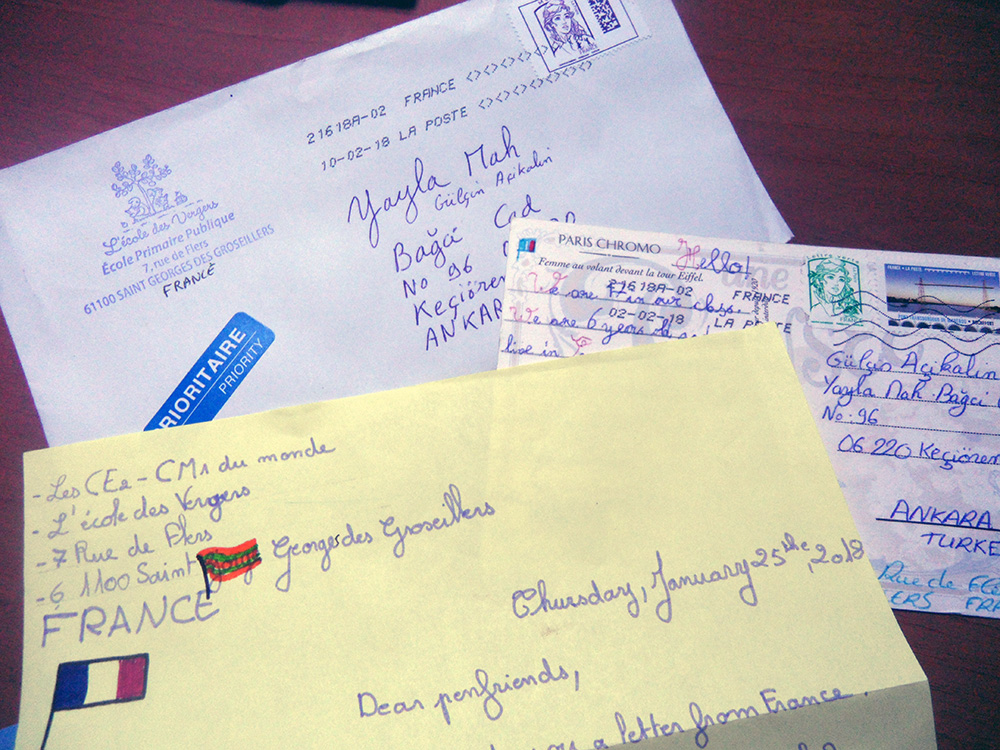 21618A-02 FRANCE <><><><><><><>
10-02-18 LA POSTE <><><><><><><>
L'école des Vergers
École Primaire Publique
7, rue de Flers
61100 SAINT GEORGES DES GROSEILLERS
FRANCE
Yayla Mah
Gülçin Açikalin
Bağci Cad
No 96
Keçiören
ANKAR
PRIORITAIRE
PRIORITY
PARIS CHROMO
Hello!
Femme au volant devant la tour Eiffel.
21618A-02 FRANCE
We are 17 in our class.
02-02-18 LA POSTE
We are 6 years old
live in
FRANCE
Gülçin Açikalin
Yayla Mah. Bağci
No. 96
06 220 Keçiören
ANKARA
TURKE
Rue de
ERS FRA
- Les CE2 - CM1 du monde
- L'école des Vergers
- 7 Rue de Flers
- 6 1100 Saint Georges des Groseillers
FRANCE
Thursday, January 25the, 2018
Dear penfriends,
a letter from France.